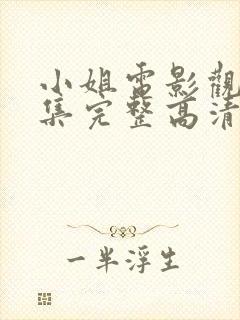 小姐電影觀
集完整高清
一半浮生